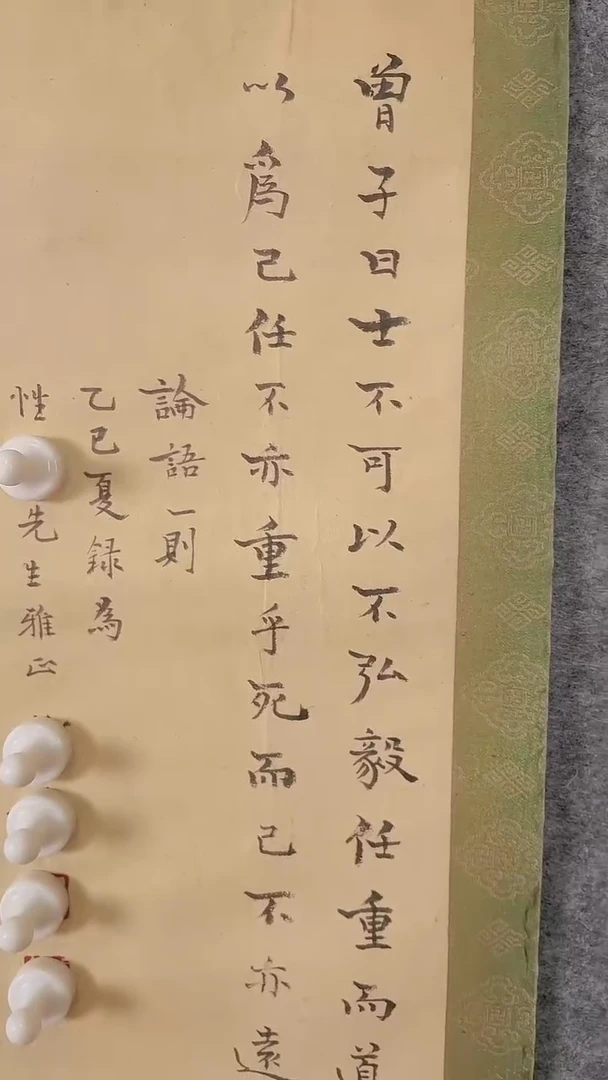 曾子曰士不可以不弘毅任重而道
以爲己任不亦重乎死而已不亦遠
論語一則
乙巳夏録為
性
先生雅正